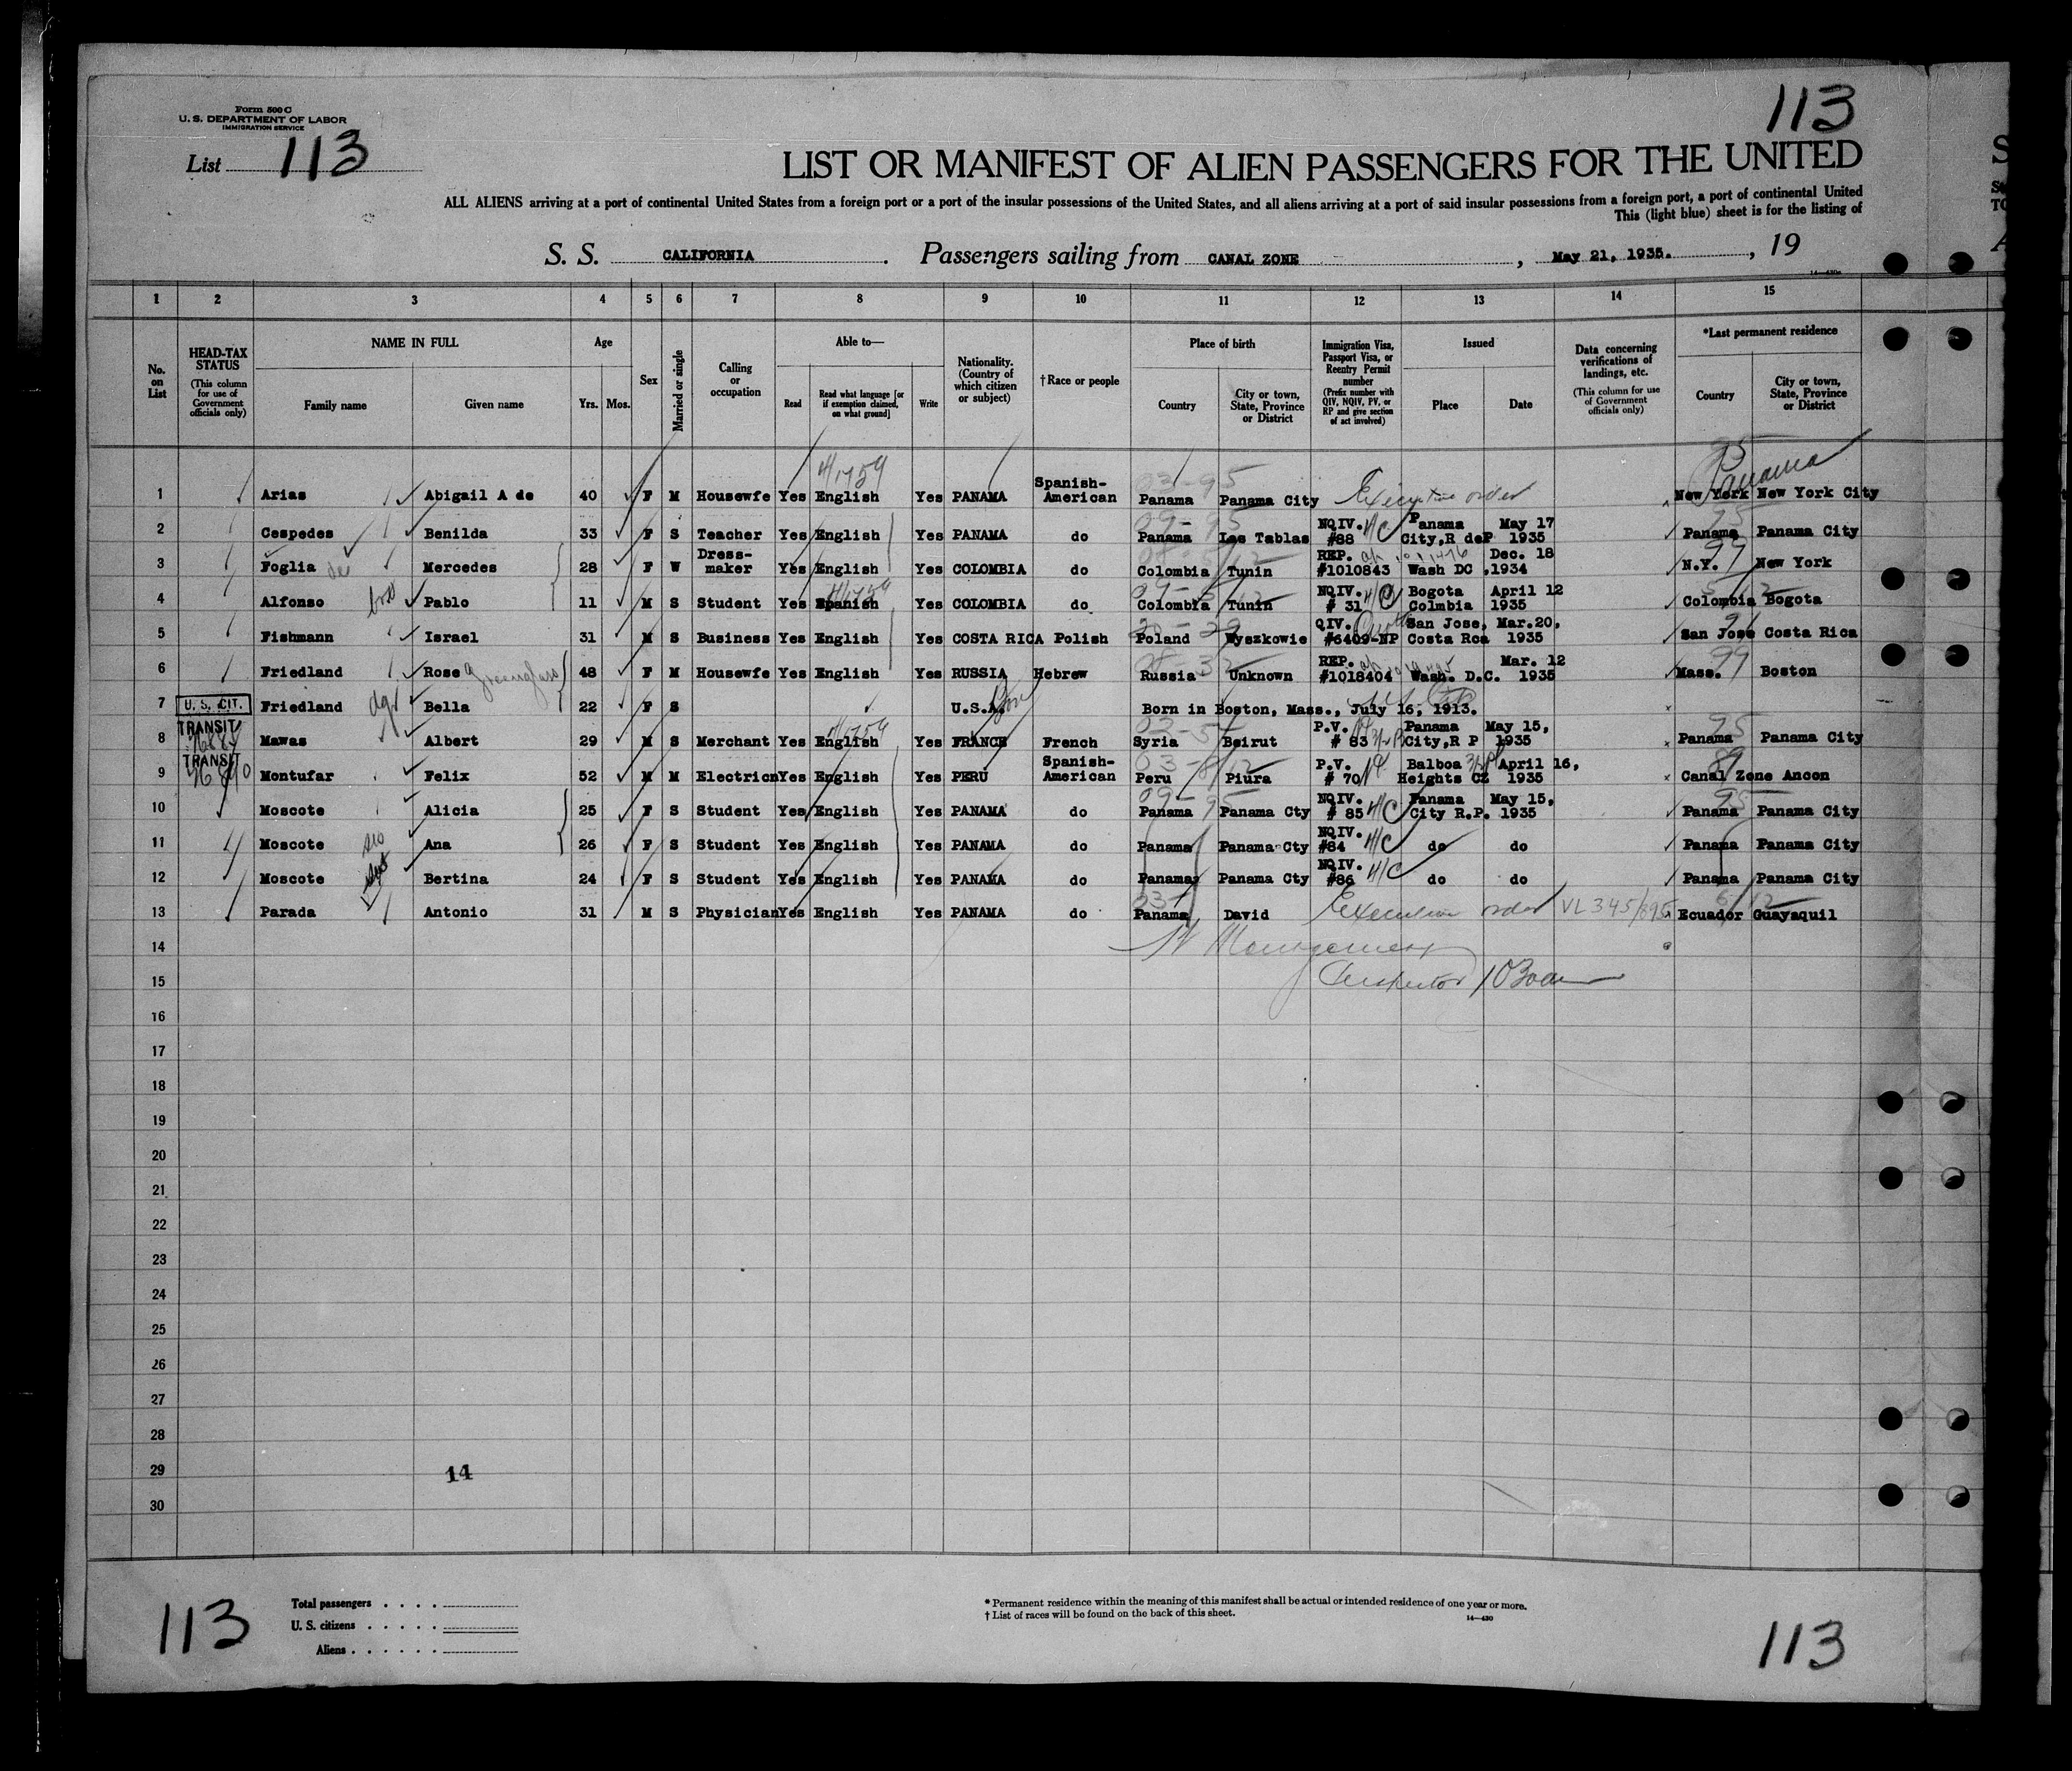 113
Form 500 C
U. S. DEPARTMENT OF LABOR
IMMIGRATION SERVICE
List 113
LIST OR MANIFEST OF ALIEN PASSENGERS FOR THE UNITED
ALL ALIENS arriving at a port of continental United States from a foreign port or a port of the insular possessions of the United States, and all aliens arriving at a port of said insular possessions from a foreign port, a port of continental United
This (light blue) sheet is for the listing of
S. S. CALIFORNIA. Passengers sailing from CANAL ZONE, May 21, 1935., 19
1 2 3 4 5 6 7 8 9 10 11 12 13 14 15
No. on List
HEAD-TAX STATUS (This column for use of Government officials only)
NAME IN FULL Family name Given name
Age Yrs. Mos.
Sex
Married or single
Calling or occupation
Able to— Read Read what language [or if exemption claimed, on what ground] Write
Nationality. (Country of which citizen or subject)
†Race or people
Place of birth Country City or town, State, Province or District
Immigration Visa, Passport Visa, or Reentry Permit number (Prefix number with QIV, NQIV, PV, or RP and give section of act involved)
Issued Place Date
Data concerning verifications of landings, etc. (This column for use of Government officials only)
*Last permanent residence Country City or town, State, Province or District
4/1759 03-95 95 Panama
1 Arias Abigail A de 40 F M Housewfe Yes English Yes PANAMA Spanish-American Panama Panama City Executive order New York New York City
2 Cespedes Benilda 33 F S Teacher Yes English Yes PANAMA do Panama Las Tablas NQIV. #88 4/C Panama City,R deP May 17 1935 Panama Panama City
3 Foglia de Mercedes 28 F W Dress-maker Yes English Yes COLOMBIA do Colombia Tunin REP. #1010843 Wash DC Dec. 18 ,1934 N.Y. New York
4 Alfonso bro Pablo 11 M S Student Yes Spanish Yes COLOMBIA do Colombia Tunin NQIV. # 31 4/C Bogota Colmbia April 12 1935 Colombia Bogota
5 Fishmann Israel 31 M S Business Yes English Yes COSTA RICA Polish Poland Wyszkowie QIV. #6409-NP San Jose, Costa Rca Mar.20, 1935 San Jose Costa Rica
6 Friedland Rose Greenglass 48 F M Housewfe Yes English Yes RUSSIA Hebrew Russia Unknown REP. #1018404 Wash. D.C. Mar. 12 1935 Mass. Boston
7 U. S. CIT. Friedland dgr Bella 22 F S U.S.A. Born in Boston, Mass., July 16, 1913.
8 TRANSIT Mawas Albert 29 M S Merchant Yes English Yes FRANCE French Syria Beirut P.V. # 83 Panama City,R P May 15, 1935 Panama Panama City
9 TRANSIT Montufar Felix 52 M M Electricn Yes English Yes PERU Spanish-American Peru Piura P.V. # 70 Balboa Heights CZ April 16, 1935 Canal Zone Ancon
10 Moscote Alicia 25 F S Student Yes English Yes PANAMA do Panama Panama Cty NQIV. # 85 4/C Panama City R.P. May 15, 1935 Panama Panama City
11 Moscote sis Ana 26 F S Student Yes English Yes PANAMA do Panama Panama Cty NQIV. #84 4/C do do Panama Panama City
12 Moscote Bertina 24 F S Student Yes English Yes PANAMA do Panama Panama Cty NQIV. #86 4/C do do Panama Panama City
13 Parada Antonio 31 M S Physician Yes English Yes PANAMA do Panama David Executive order Ecuador Guayaquil
14
15 Inspector
16
17
18
19
20
21
22
23
24
25
26
27
28
29 14
30
Total passengers
U. S. citizens
Aliens
* Permanent residence within the meaning of this manifest shall be actual or intended residence of one year or more.
† List of races will be found on the back of this sheet.
14—430
113
113